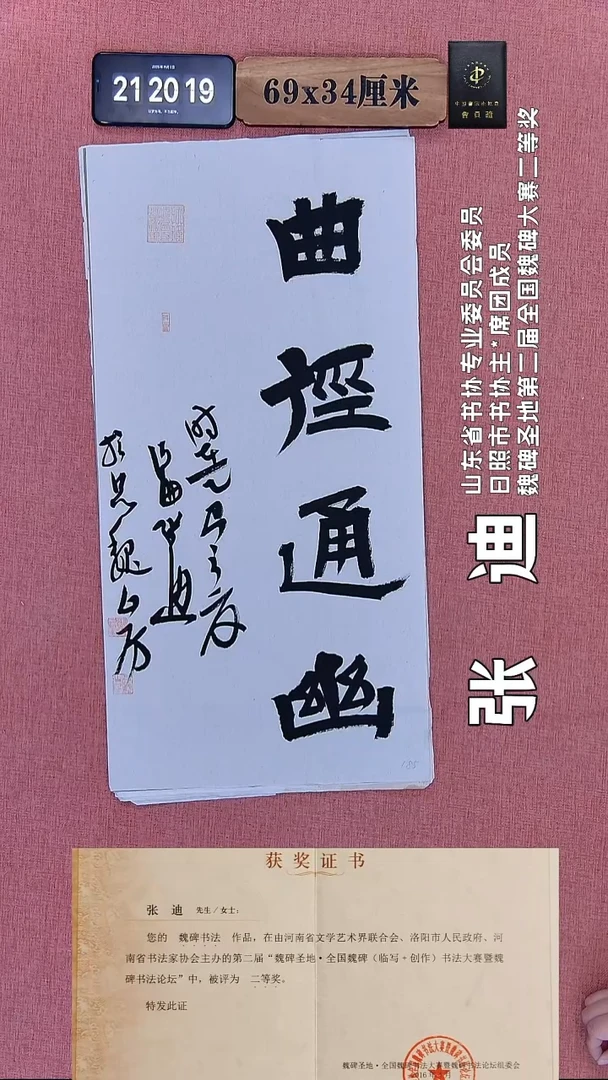 21 20 19
69x34厘米
曲
徑
通
幽
山东省书协专业委员会委员
日照市书协主*席团成员
魏碑圣地第二届全国魏碑大赛二等奖
张 迪
185
获奖证书
张 迪 先生/女士：
您的 魏碑书法 作品，在由河南省文学艺术界联合会、洛阳市人民政府、河
南省书法家协会主办的第二届“魏碑圣地·全国魏碑（临写+创作）书法大赛暨魏
碑书法论坛”中，被评为 二等奖。
特发此证
魏碑圣地·全国魏碑书法大赛暨魏碑书法论坛组委会